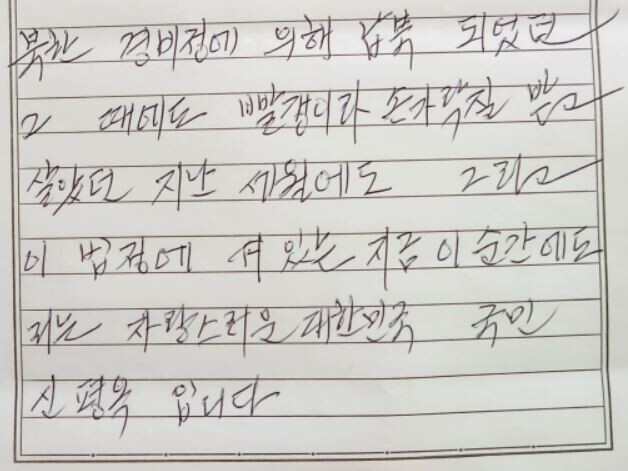 북한 경비정에 의해 납북 되었던
그 때에도 빨갱이라 손가락질 받고
살았던 지난 세월에도 그리고
이 법정에 서 있는 지금 이 순간에도
저는 자랑스러운 대한민국 국민
신평옥 입니다